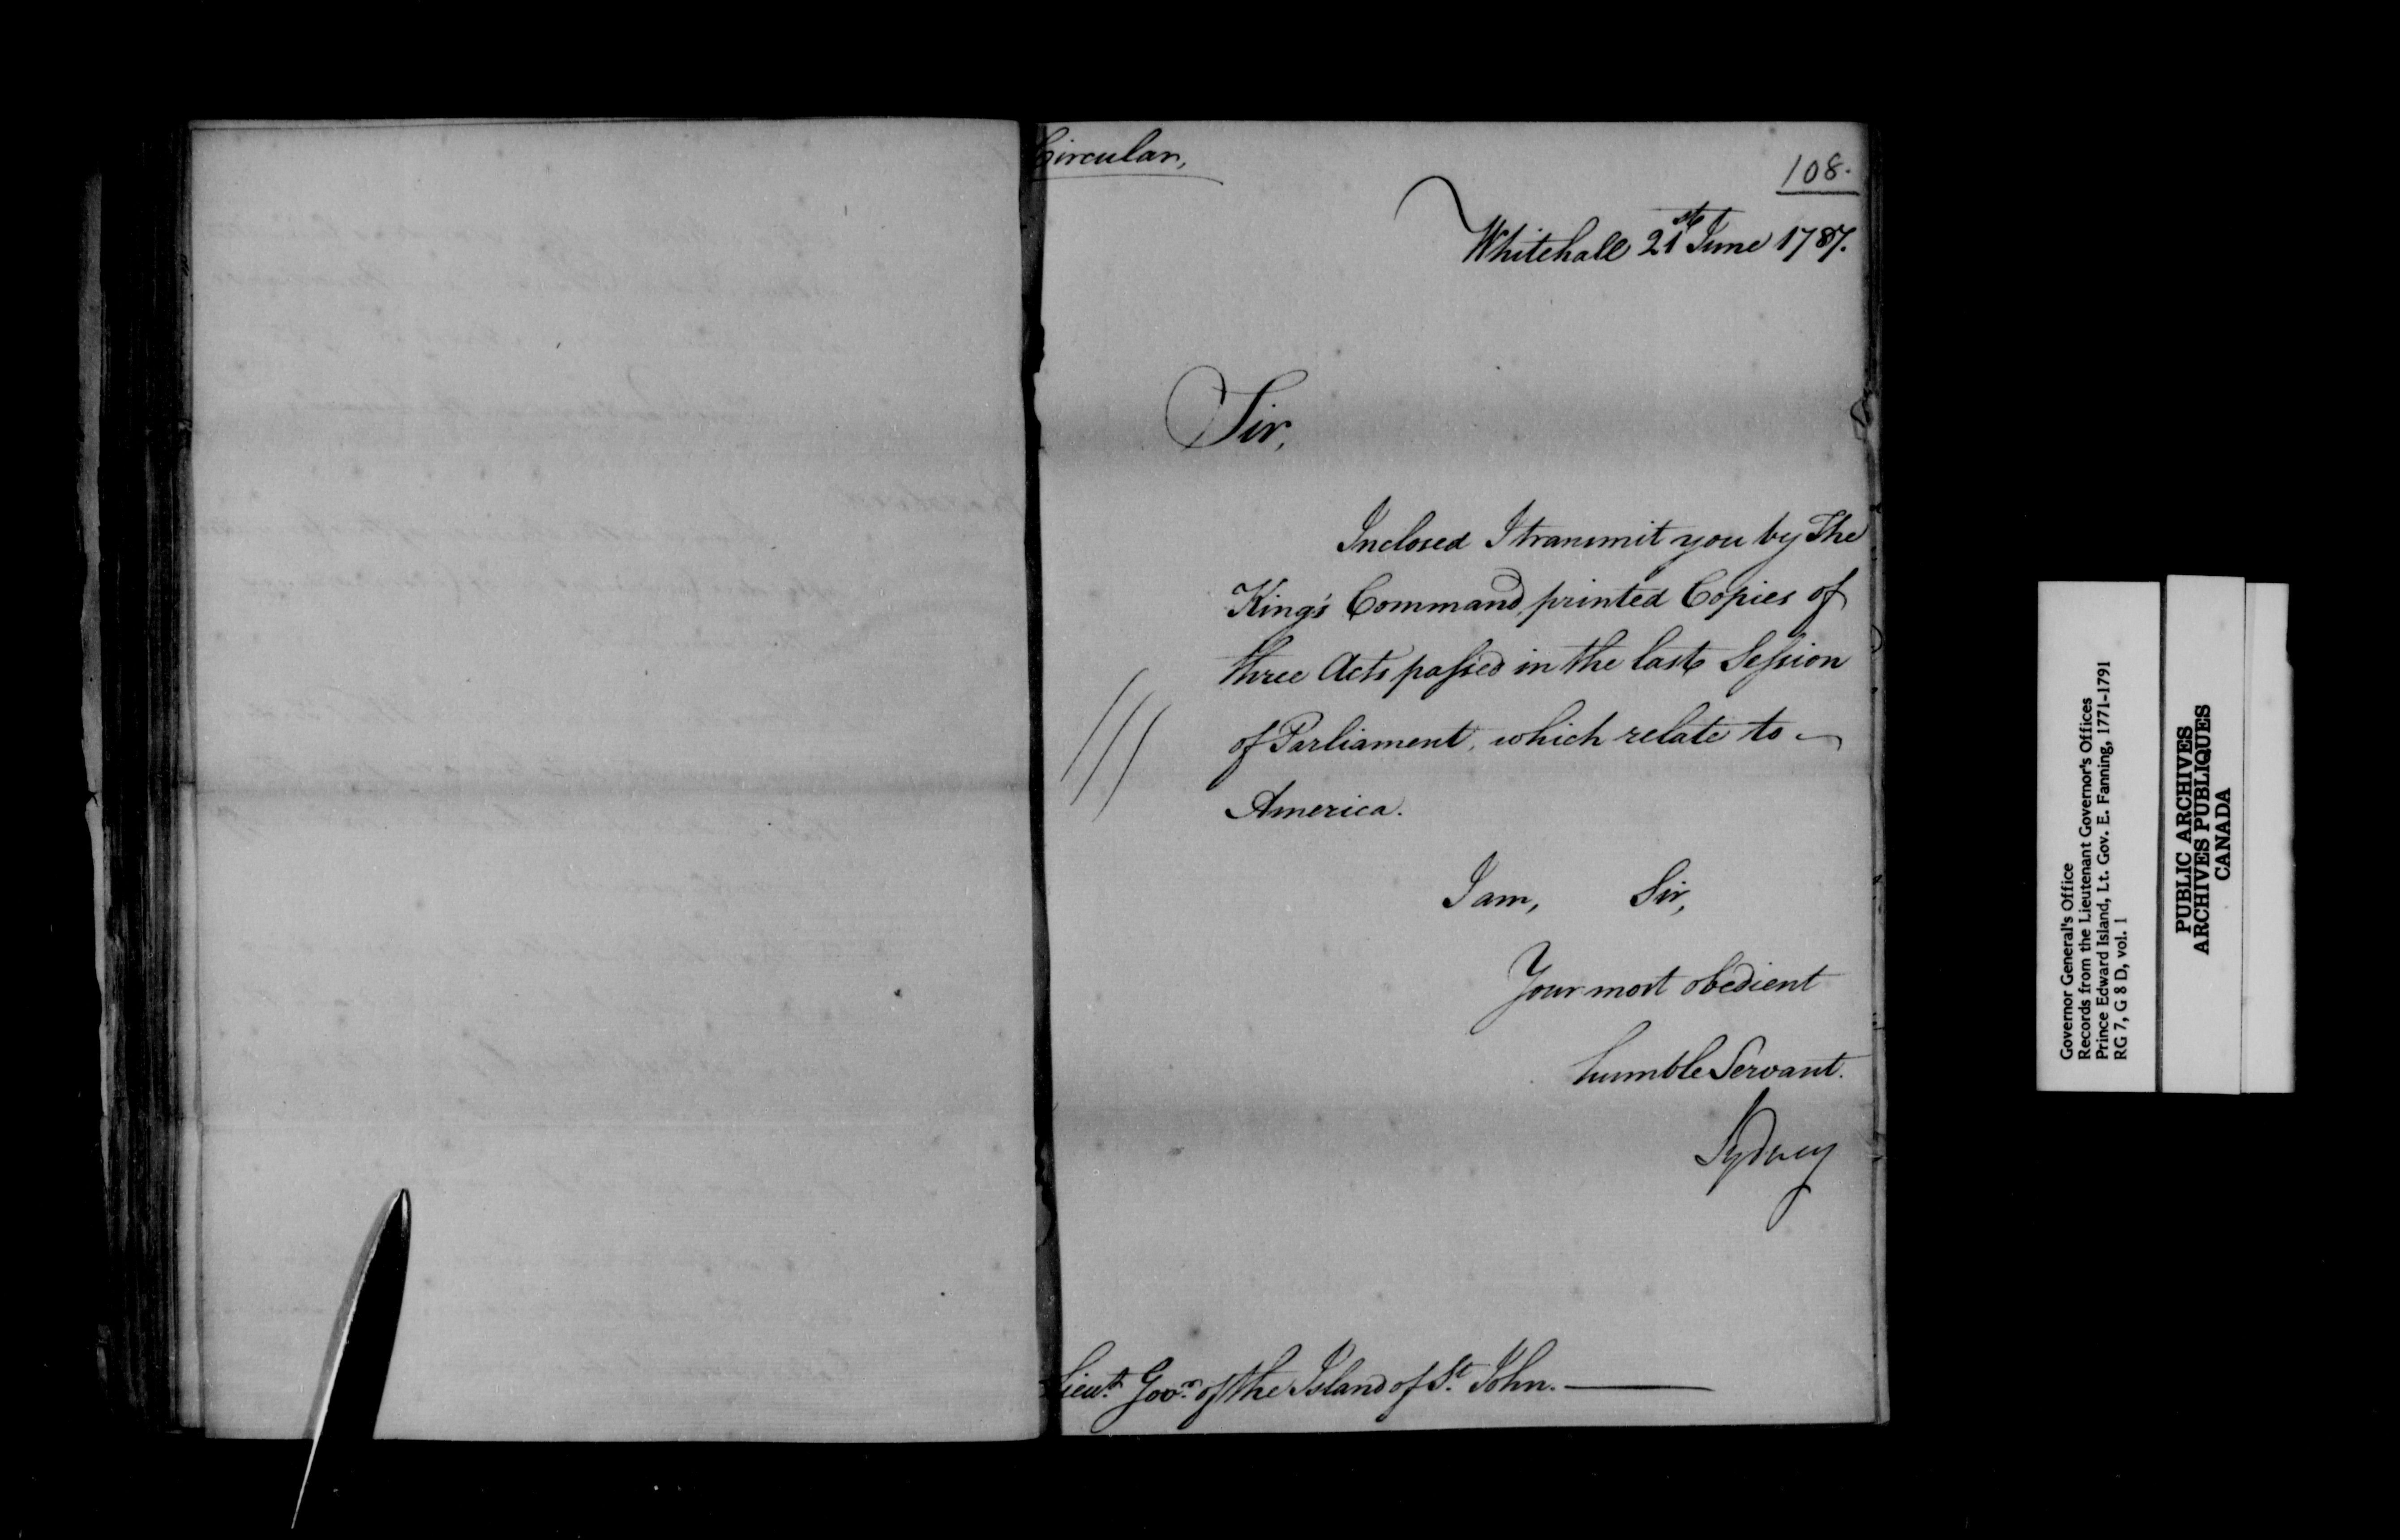 Circular,
108.
Whitehall 21st June 1787.
Sir,
Inclosed I transmit you by The
King's Command, printed Copies of
three Acts passed in the last Session
of Parliament, which relate to
America.
I am, Sir,
Your most obedient
humble Servant.
Sydney
Lieut. Govr. of the Island of St. John.
Governor General's Office
Records from the Lieutenant Governor's Offices
Prince Edward Island, Lt. Gov. E. Fanning, 1771-1791
RG 7, G 8 D, vol. 1
PUBLIC ARCHIVES
ARCHIVES PUBLIQUES
CANADA